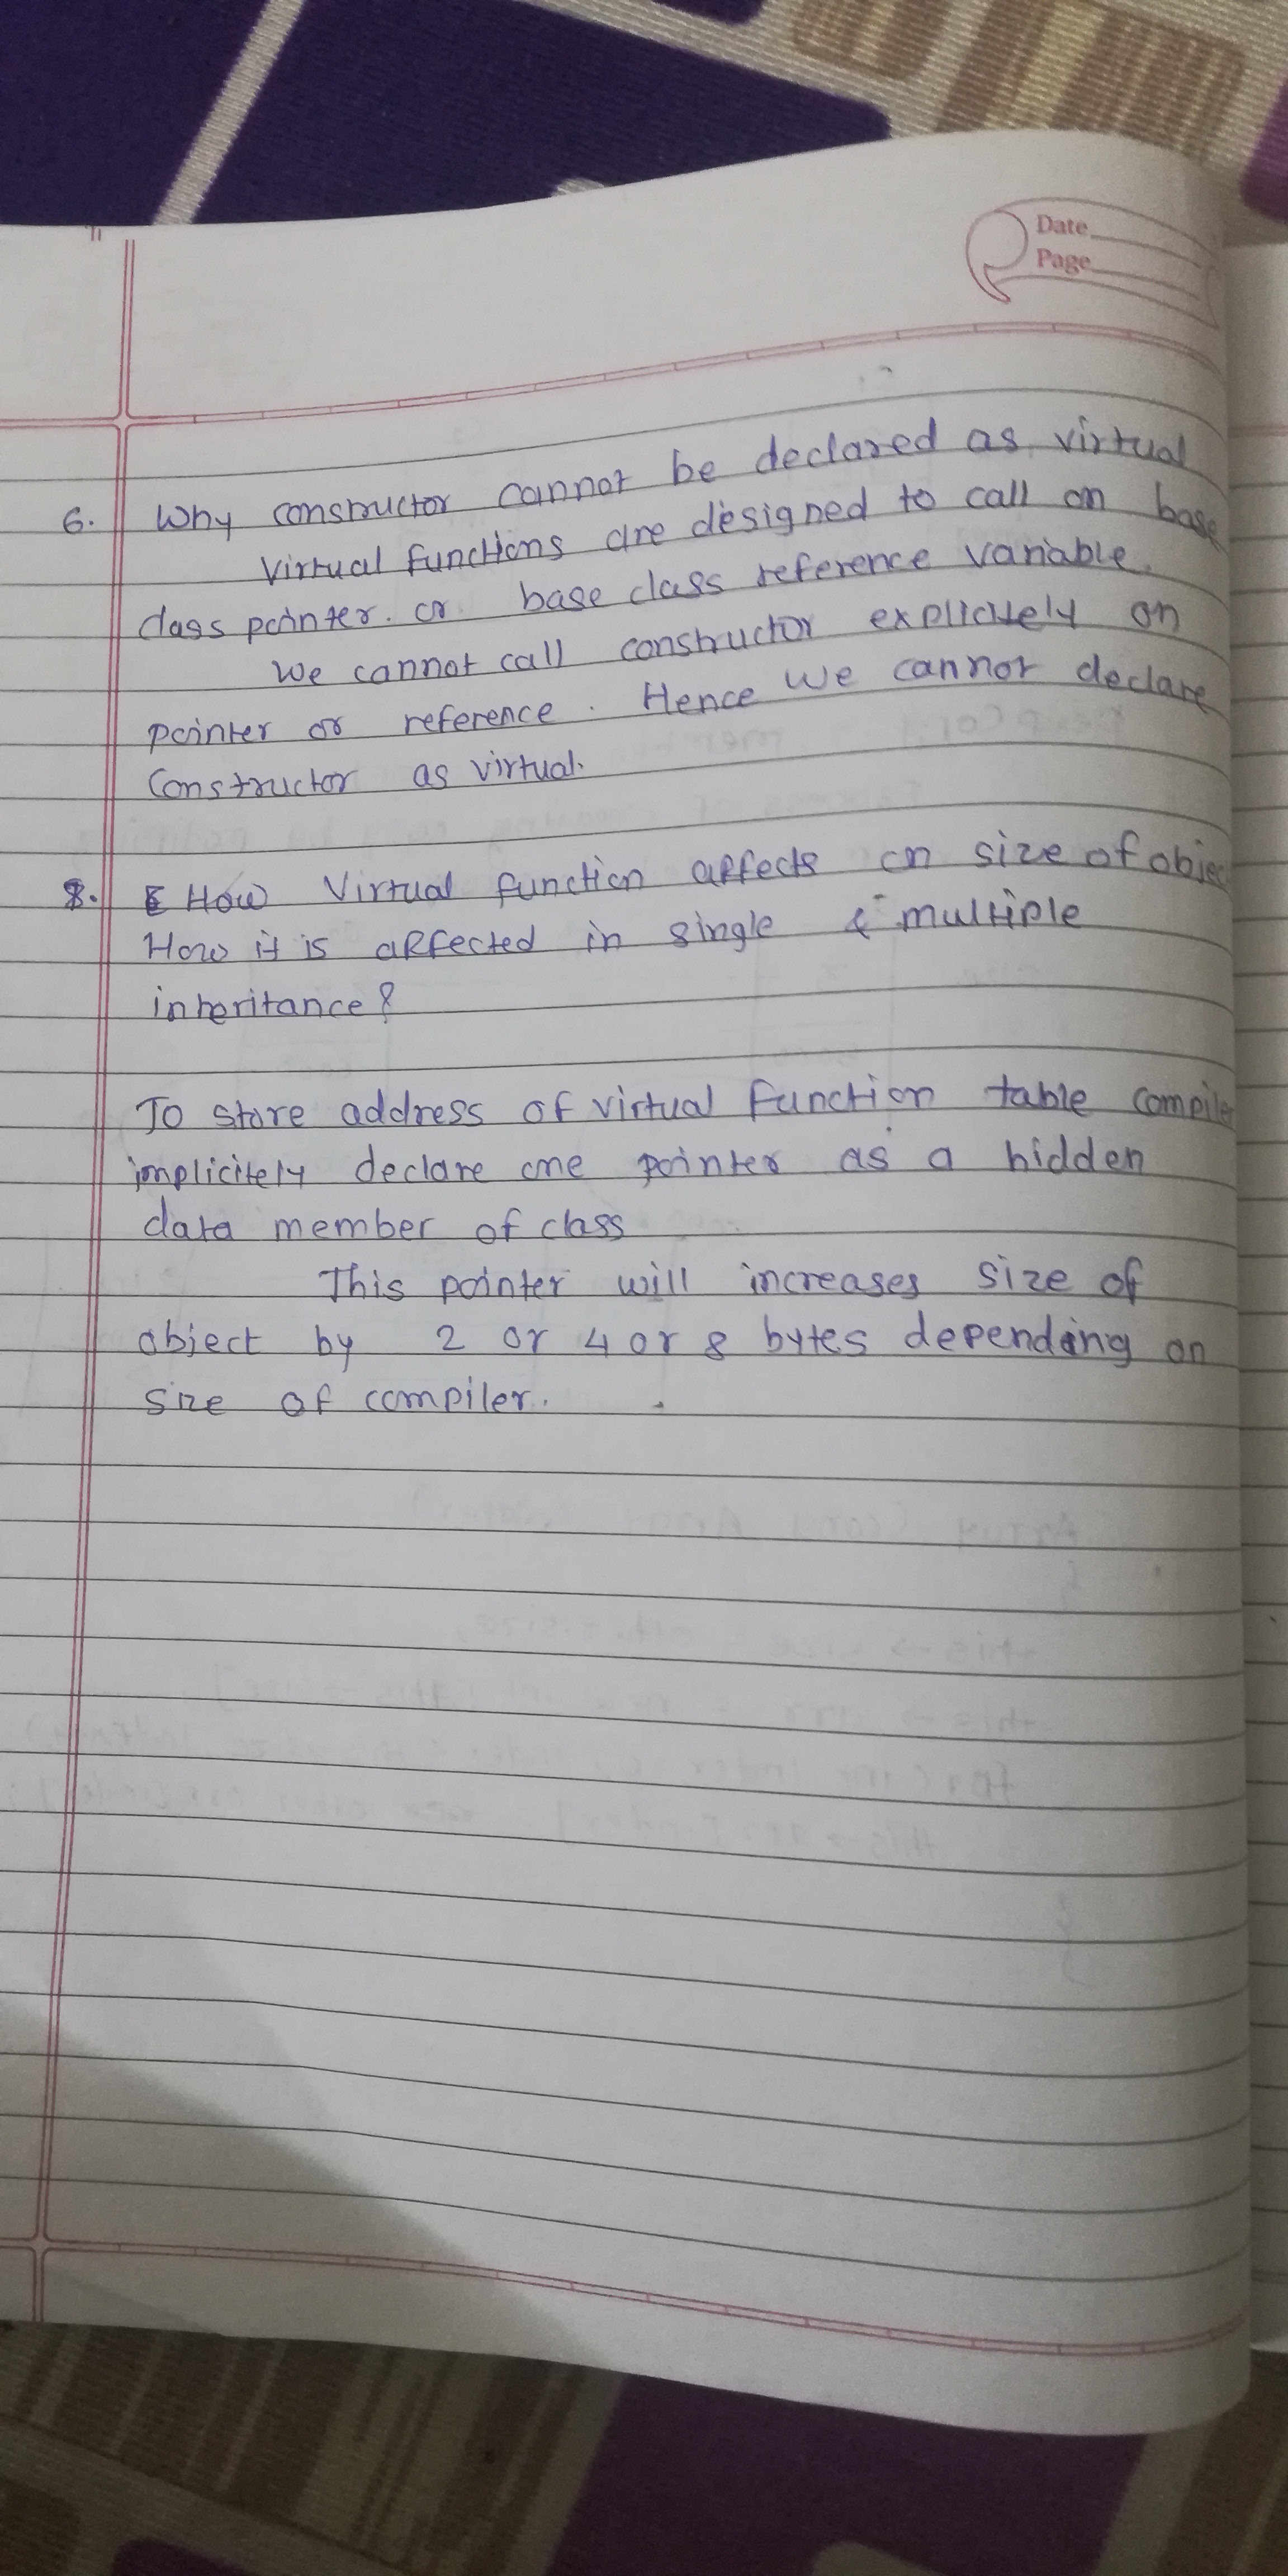 Date
Page
6. Why constructor cannot be declared as virtual
Virtual functions are designed to call on base
class pointer. or base class reference variable.
We cannot call constructor explicitely on
pointer or reference. Hence we cannot declare
constructor as virtual.
8. How virtual function affects on size of objec
How it is affected in single & multiple
inheritance?
To store address of virtual function table compiler
implicitely declare one pointer as a hidden
data member of class
This pointer will increases size of
object by 2 or 4 or 8 bytes depending on
size of compiler.